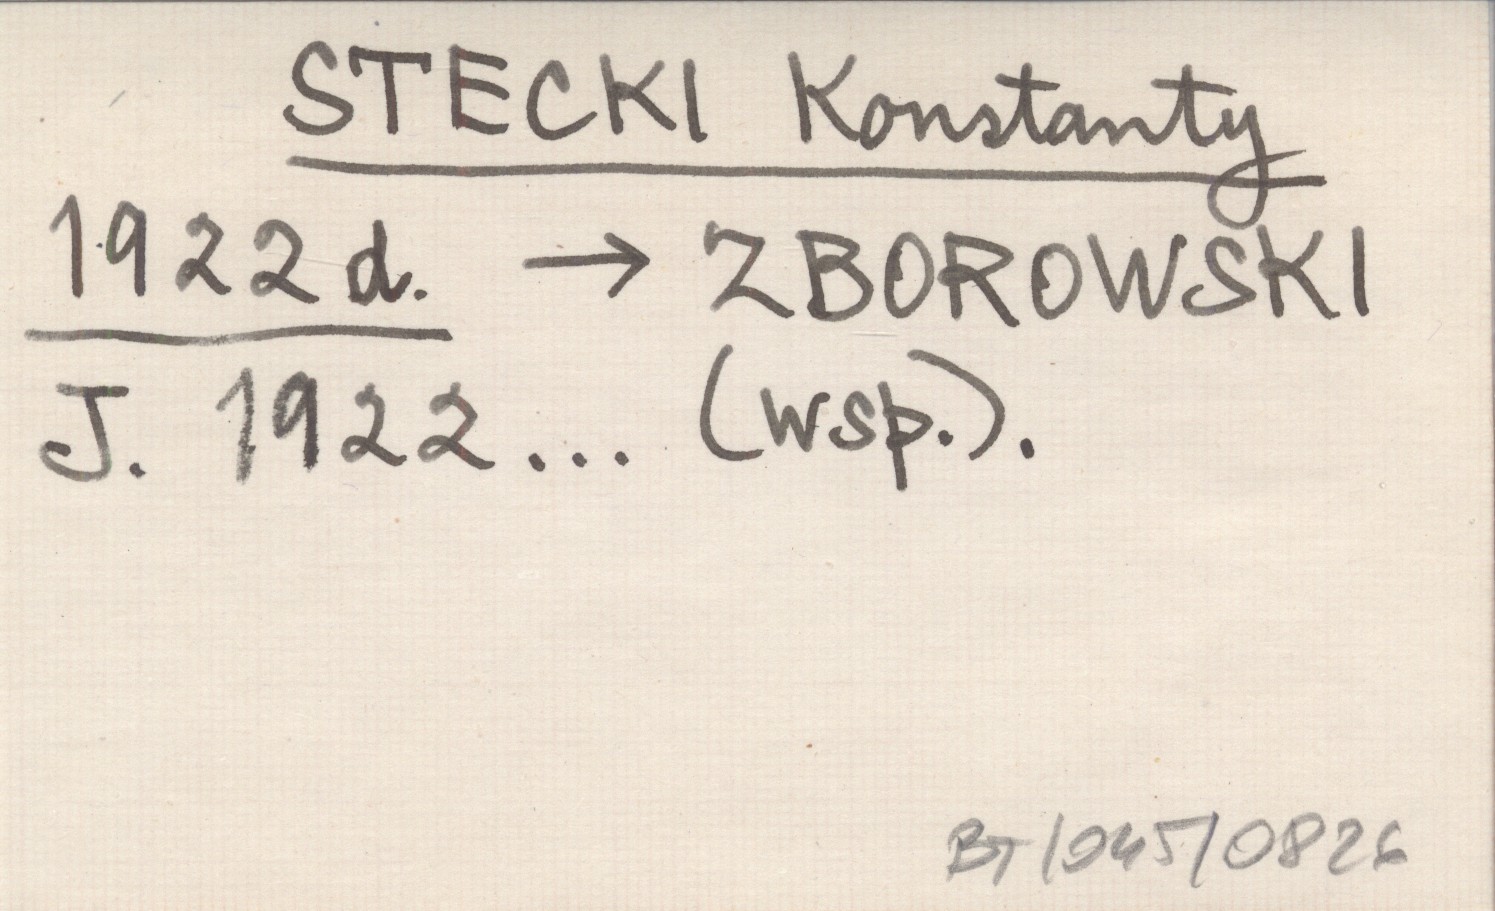 STECKI Konstanty
1922 d. → ZBOROWSKI
J. 1922... (wsp.).
BT/045/0826